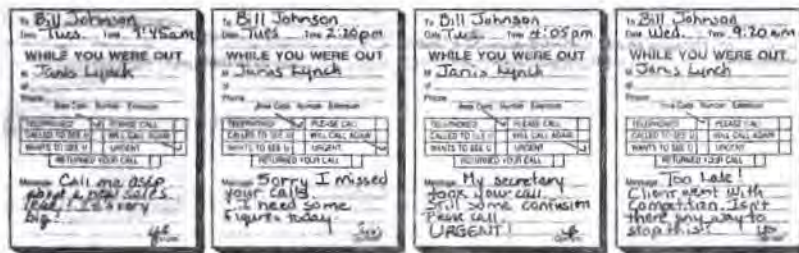 To Bill Johnson
Date Tues. Time 9:45am
WHILE YOU WERE OUT
M Janis Lynch
of
Phone
Area Code Number Extension
TELEPHONED PLEASE CALL
CALLED TO SEE U WILL CALL AGAIN
WANTS TO SEE U URGENT
RETURNED YOUR CALL
Message Call me asap
about a new sales
It's very
big!
To Bill Johnson
Date Tues Time 2:20pm
WHILE YOU WERE OUT
M Janis Lynch
of
Phone
Area Code Number Extension
TELEPHONED PLEASE CALL
CALLED TO SEE U WILL CALL AGAIN
WANTS TO SEE U URGENT
RETURNED YOUR CALL
Message Sorry I missed
your calls
...I need some
figures today.
To Bill Johnson
Date Tues. Time 4:05pm
WHILE YOU WERE OUT
M Janis Lynch
of
Phone
Area Code Number Extension
TELEPHONED PLEASE CALL
CALLED TO SEE U WILL CALL AGAIN
WANTS TO SEE U URGENT
RETURNED YOUR CALL
Message My secretary
took your call.
Still some confusion
Please call.
URGENT!
To Bill Johnson
Date Wed. Time 9:20am
WHILE YOU WERE OUT
M Janis Lynch
of
Phone
Area Code Number Extension
TELEPHONED PLEASE CALL
CALLED TO SEE U WILL CALL AGAIN
WANTS TO SEE U URGENT
RETURNED YOUR CALL
Message Too Late!
Client went with
Competition. Isn't
there any way to
stop this!!